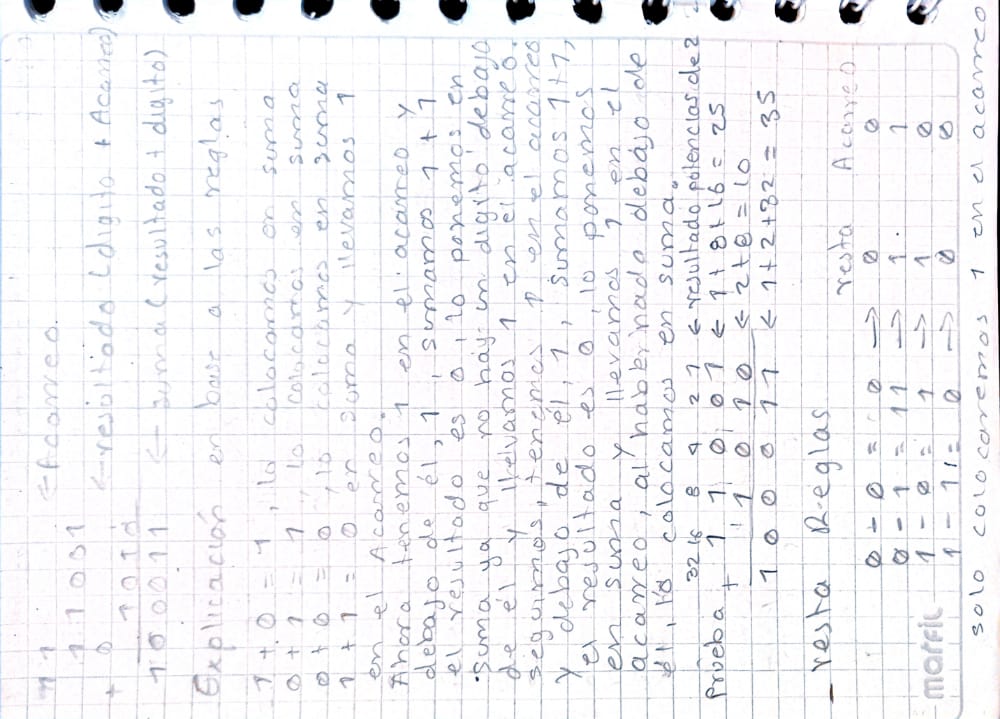 1 1 ← Acarreo.
1 1 0 0 1 ← resultado (digito + Acarreo)
+ 0 1 0 1 0
1 0 0 0 1 1 ← suma (resultado + digito)
Explicación en base a las reglas
1 + 0 = 1, lo colocamos en suma
0 + 1 = 1, lo colocamos en suma
0 + 0 = 0, lo colocamos en suma
1 + 1 = 0 en suma y llevamos 1
en el Acarreo.
Ahora tenemos 1 en el acarreo y
debajo de él, 1, sumamos 1 + 1
el resultado es 0, lo ponemos en
suma ya que no hay un digito debajo
de él y llevamos 1 en el acarreo.
seguimos, tenemos 1 en el acarreo
y debajo de él, 1, sumamos 1+1,
el resultado es 0, lo ponemos
en suma y llevamos 1 en el
acarreo, al no haber nada debajo de
él, lo colocamos en suma.
Prueba 32 16 8 4 2 1 ← resultado potencias de 2
+ 1 1 0 0 1 ← 1 + 8 + 16 = 25
1 0 1 0 ← 2 + 8 = 10
1 0 0 0 1 1 ← 1 + 2 + 32 = 35
- resta Reglas resta Acarreo
0 - 0 = 0 → 0 0
0 - 1 = 11 → 1 1
1 - 0 = 1 → 1 0
1 - 1 = 0 → 0 0
marfil
solo colocaremos 1 en el acarreo